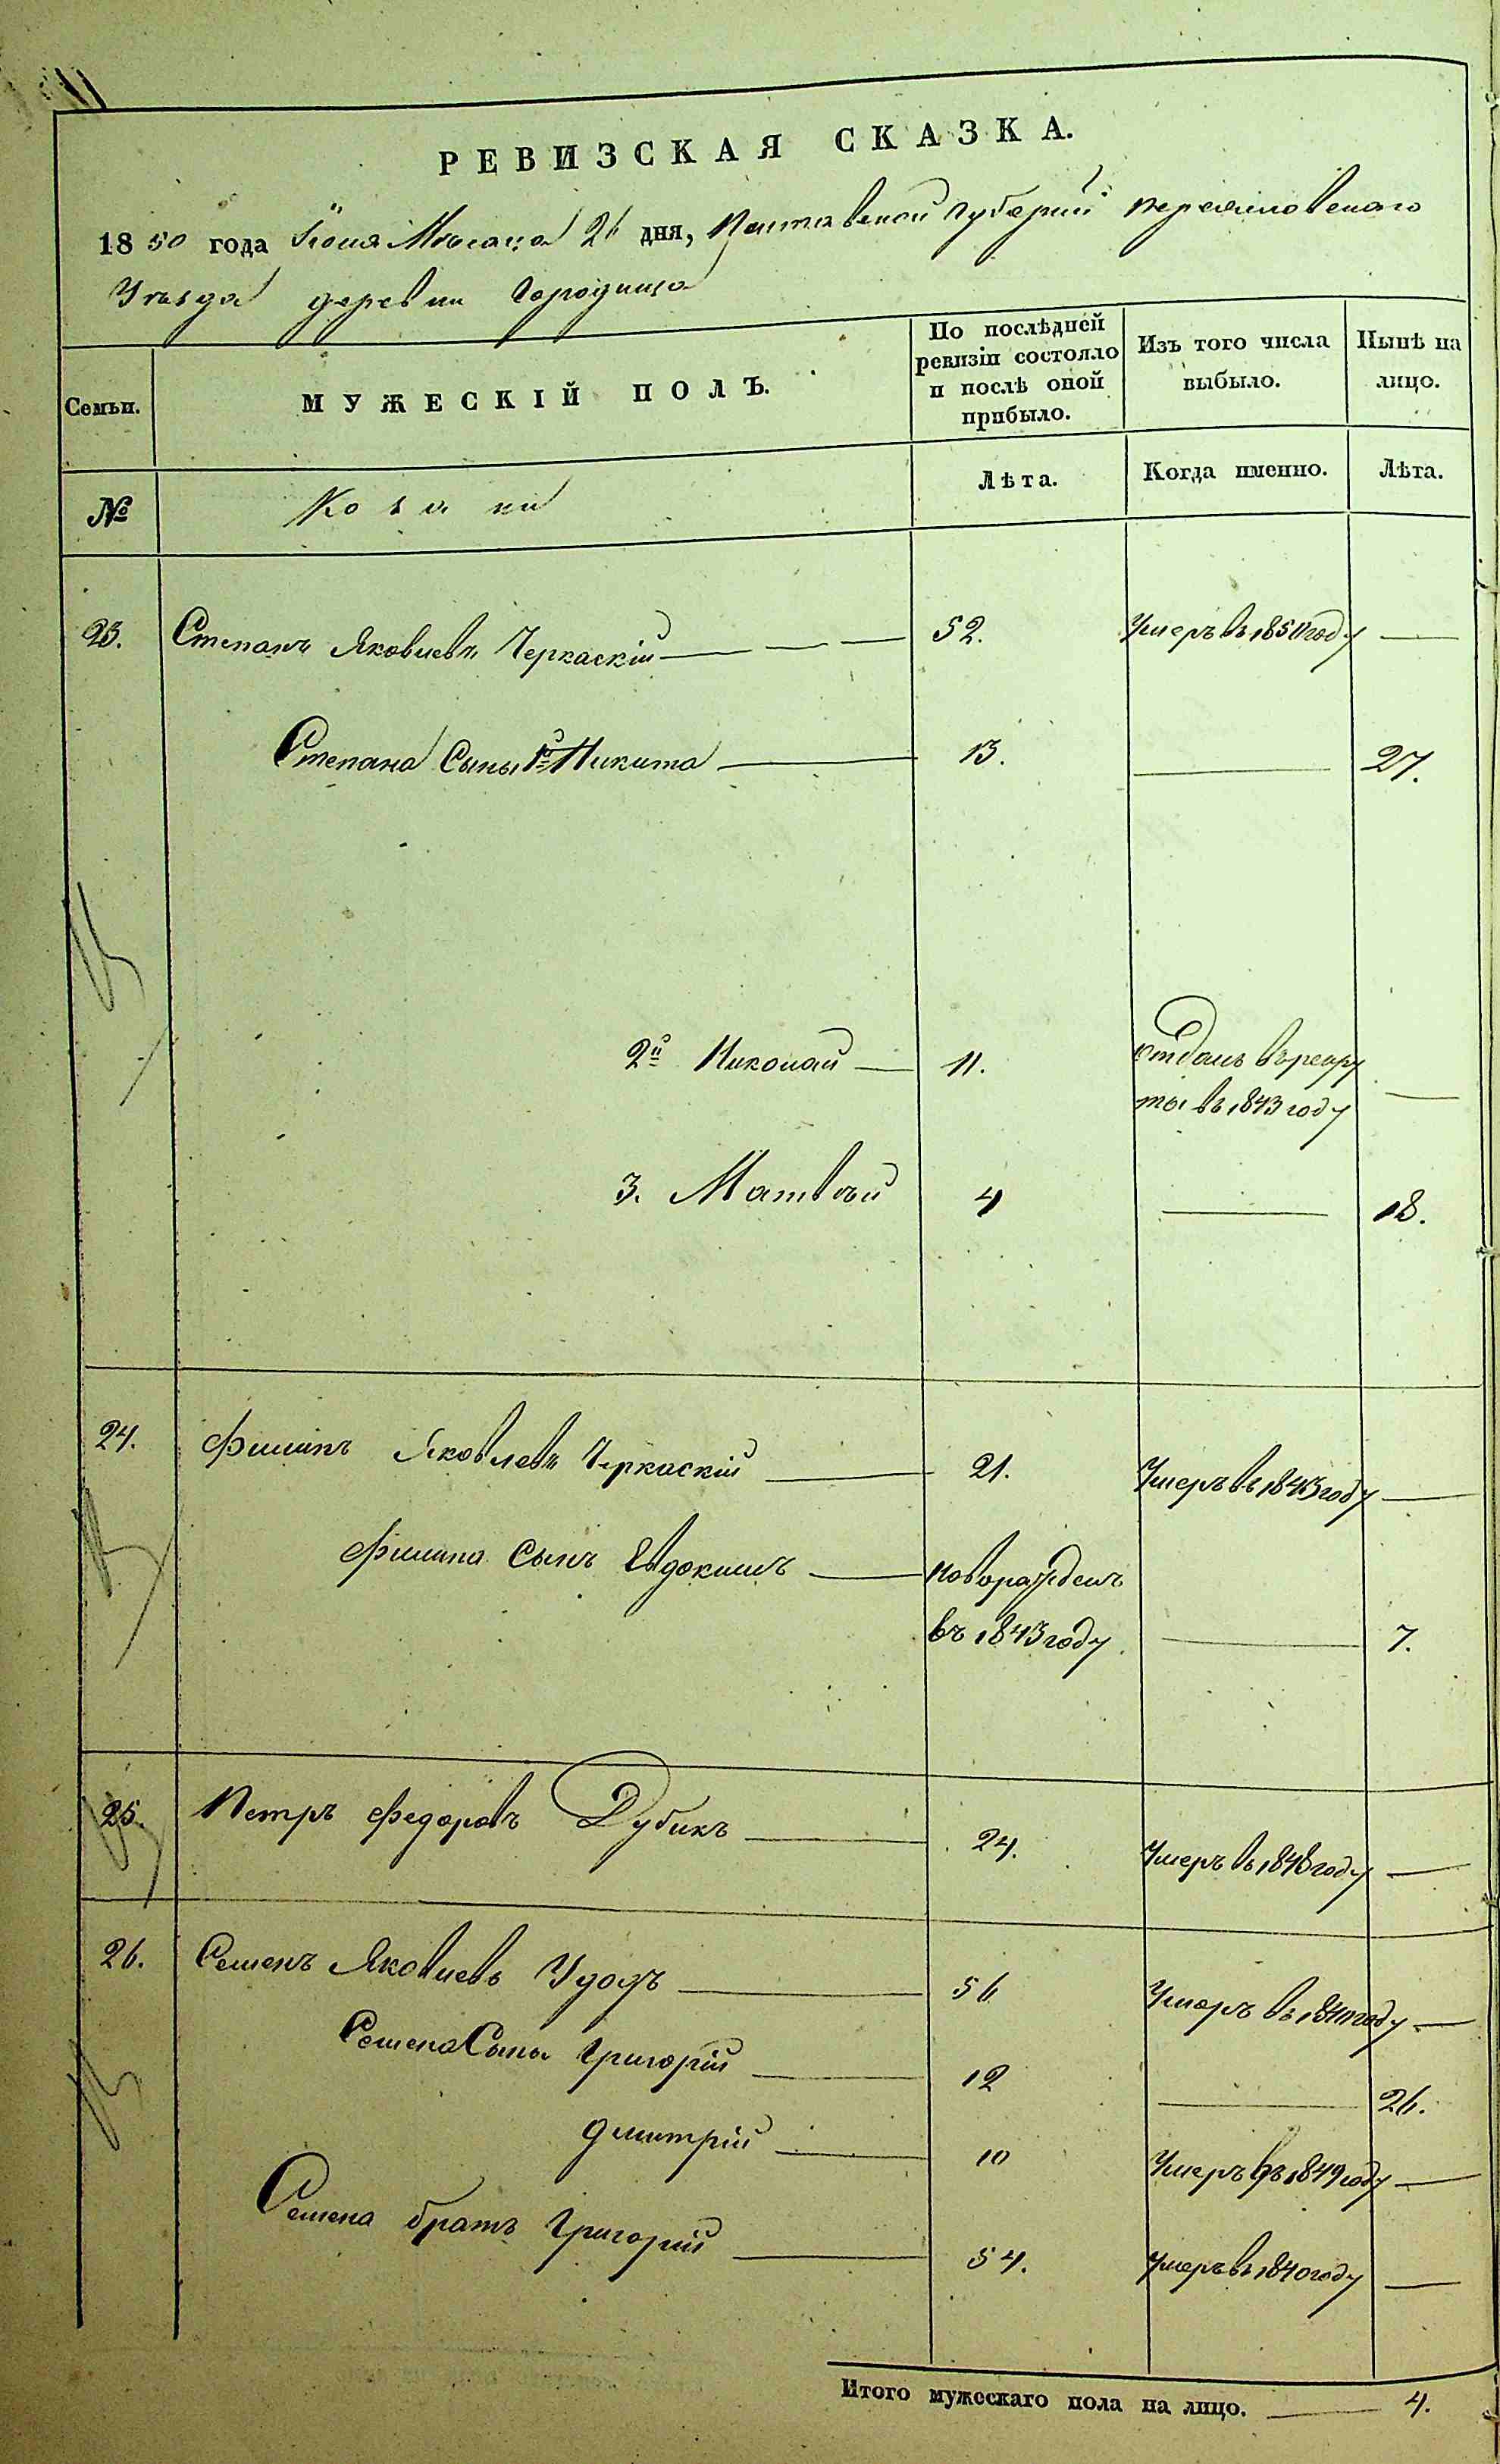 РЕВИЗСКАЯ СКАЗКА.
1850 года Іюня Мѣсяца 26 дня, Полтавской Губерніи Переяславскаго
Уѣзда деревни Городища
Семьи.
МУЖЕСКІЙ ПОЛЪ.
По послѣдней ревизіи состояло и послѣ оной прибыло.
Изъ того числа выбыло.
Нынѣ на лицо.
№
Козаки
Лѣта.
Когда именно.
Лѣта.
23. Степанъ Яковлевъ Черкаскій 52. Умеръ въ 1850 году
Степана Сыны 1й Никита 13. 27.
2й Николай 11. отданъ въ рекру
ты въ 1843 году
3. Матвѣй 4 18.
24. Филипъ Яковлевъ Черкаскій 21. Умеръ въ 1843 году
Филипа Сынъ Евдокимъ новорожденъ
въ 1843 году 7.
25. Петръ Федоровъ Дубикъ 24. Умеръ въ 1848 году
26. Семенъ Яковлевъ Удодъ 56 Умеръ въ году
Семена Сыны Григорій 12 26.
Дмитрій 10 Умеръ въ 1849 году
Семена братъ Григорій 54. Умеръ въ 1840 году
Итого мужескаго пола на лицо. 4.